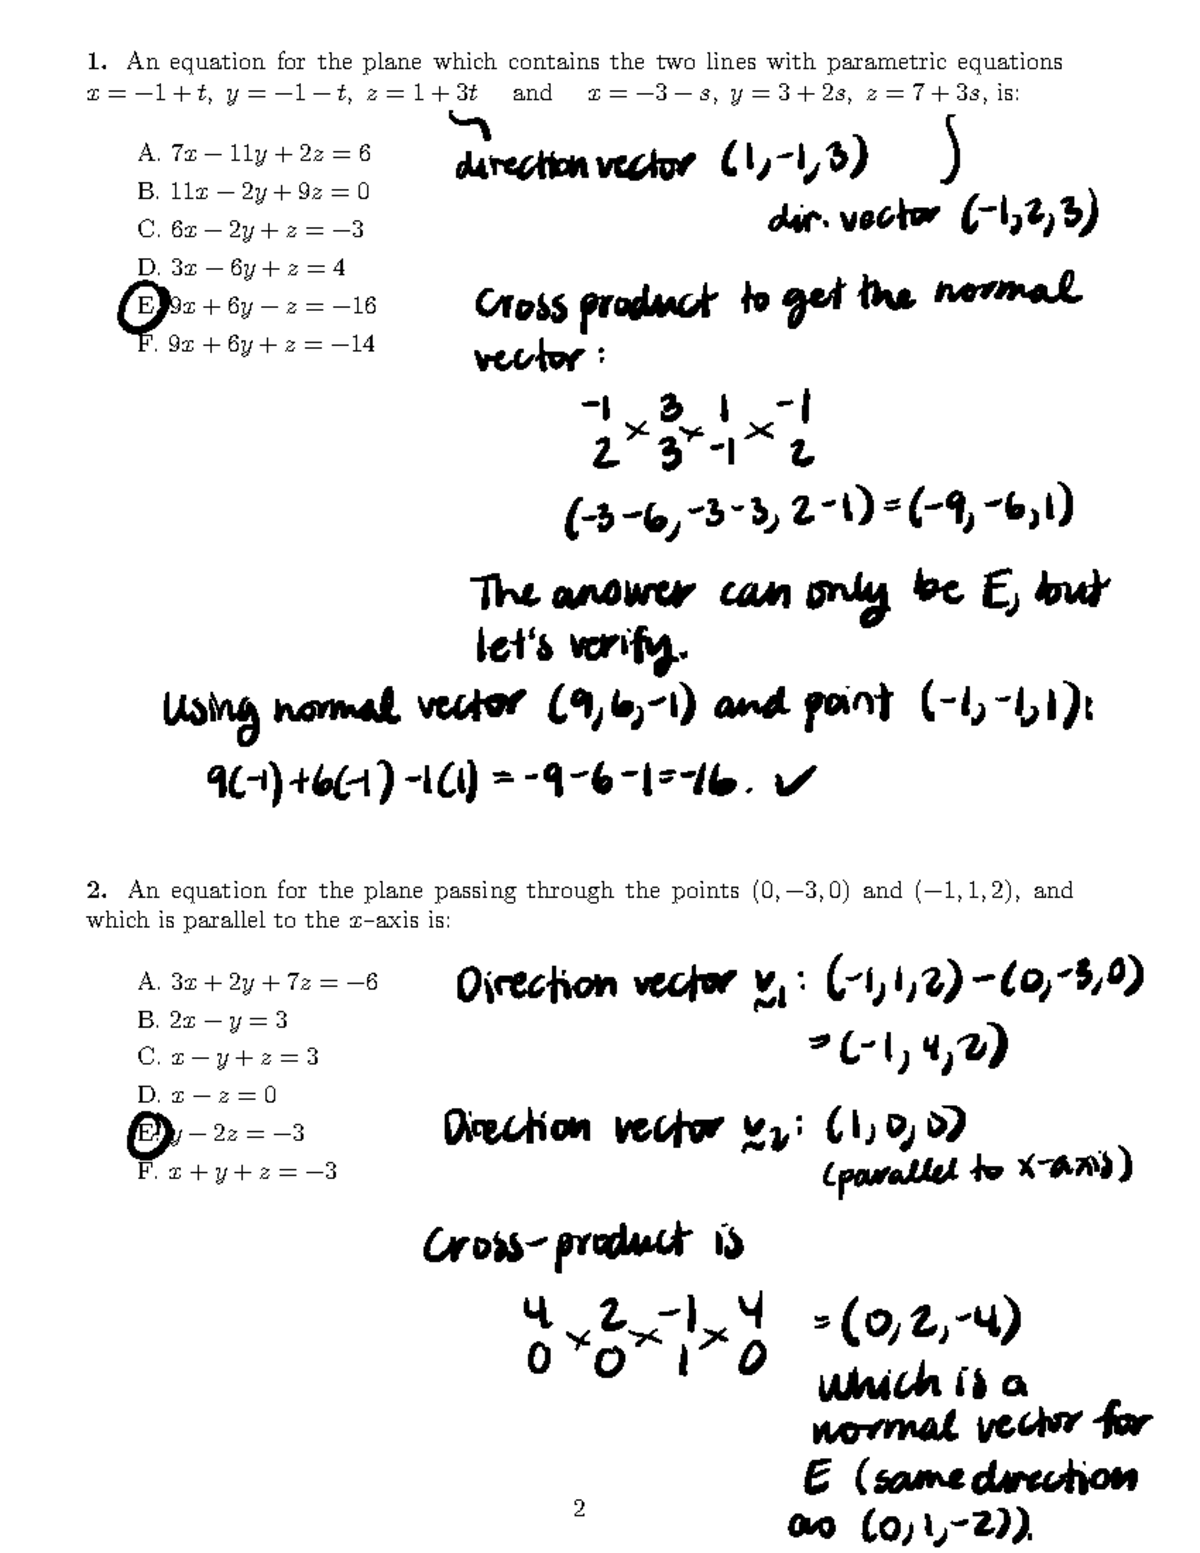 1. An equation for the plane which contains the two lines with parametric equations
x = −1 + t, y = −1 − t, z = 1 + 3t and x = −3 − s, y = 3 + 2s, z = 7 + 3s, is:
A. 7x − 11y + 2z = 6
direction vector (1,-1,3)
B. 11x − 2y + 9z = 0
dir. vector (-1,2,3)
C. 6x − 2y + z = −3
D. 3x − 6y + z = 4
E. 9x + 6y − z = −16
F. 9x + 6y + z = −14
Cross product to get the normal
vector:
-1 3 1 -1
× × ×
2 3 -1 2
(-3-6, -3-3, 2-1) = (-9, -6, 1)
The answer can only be E, but
let's verify.
Using normal vector (9,6,-1) and point (-1,-1,1):
9(-1)+6(-1)-1(1) = -9-6-1=-16. ✓
2. An equation for the plane passing through the points (0, −3, 0) and (−1, 1, 2), and
which is parallel to the x-axis is:
A. 3x + 2y + 7z = −6
B. 2x − y = 3
C. x − y + z = 3
D. x − z = 0
E. y − 2z = −3
F. x + y + z = −3
Direction vector v₁: (-1,1,2)-(0,-3,0)
=(-1,4,2)
Direction vector v₂: (1,0,0)
(parallel to x-axis)
Cross-product is
4 2 -1 4
× × ×
0 0 1 0
=(0,2,-4)
which is a
normal vector for
E (same direction
as (0,1,-2)).
2